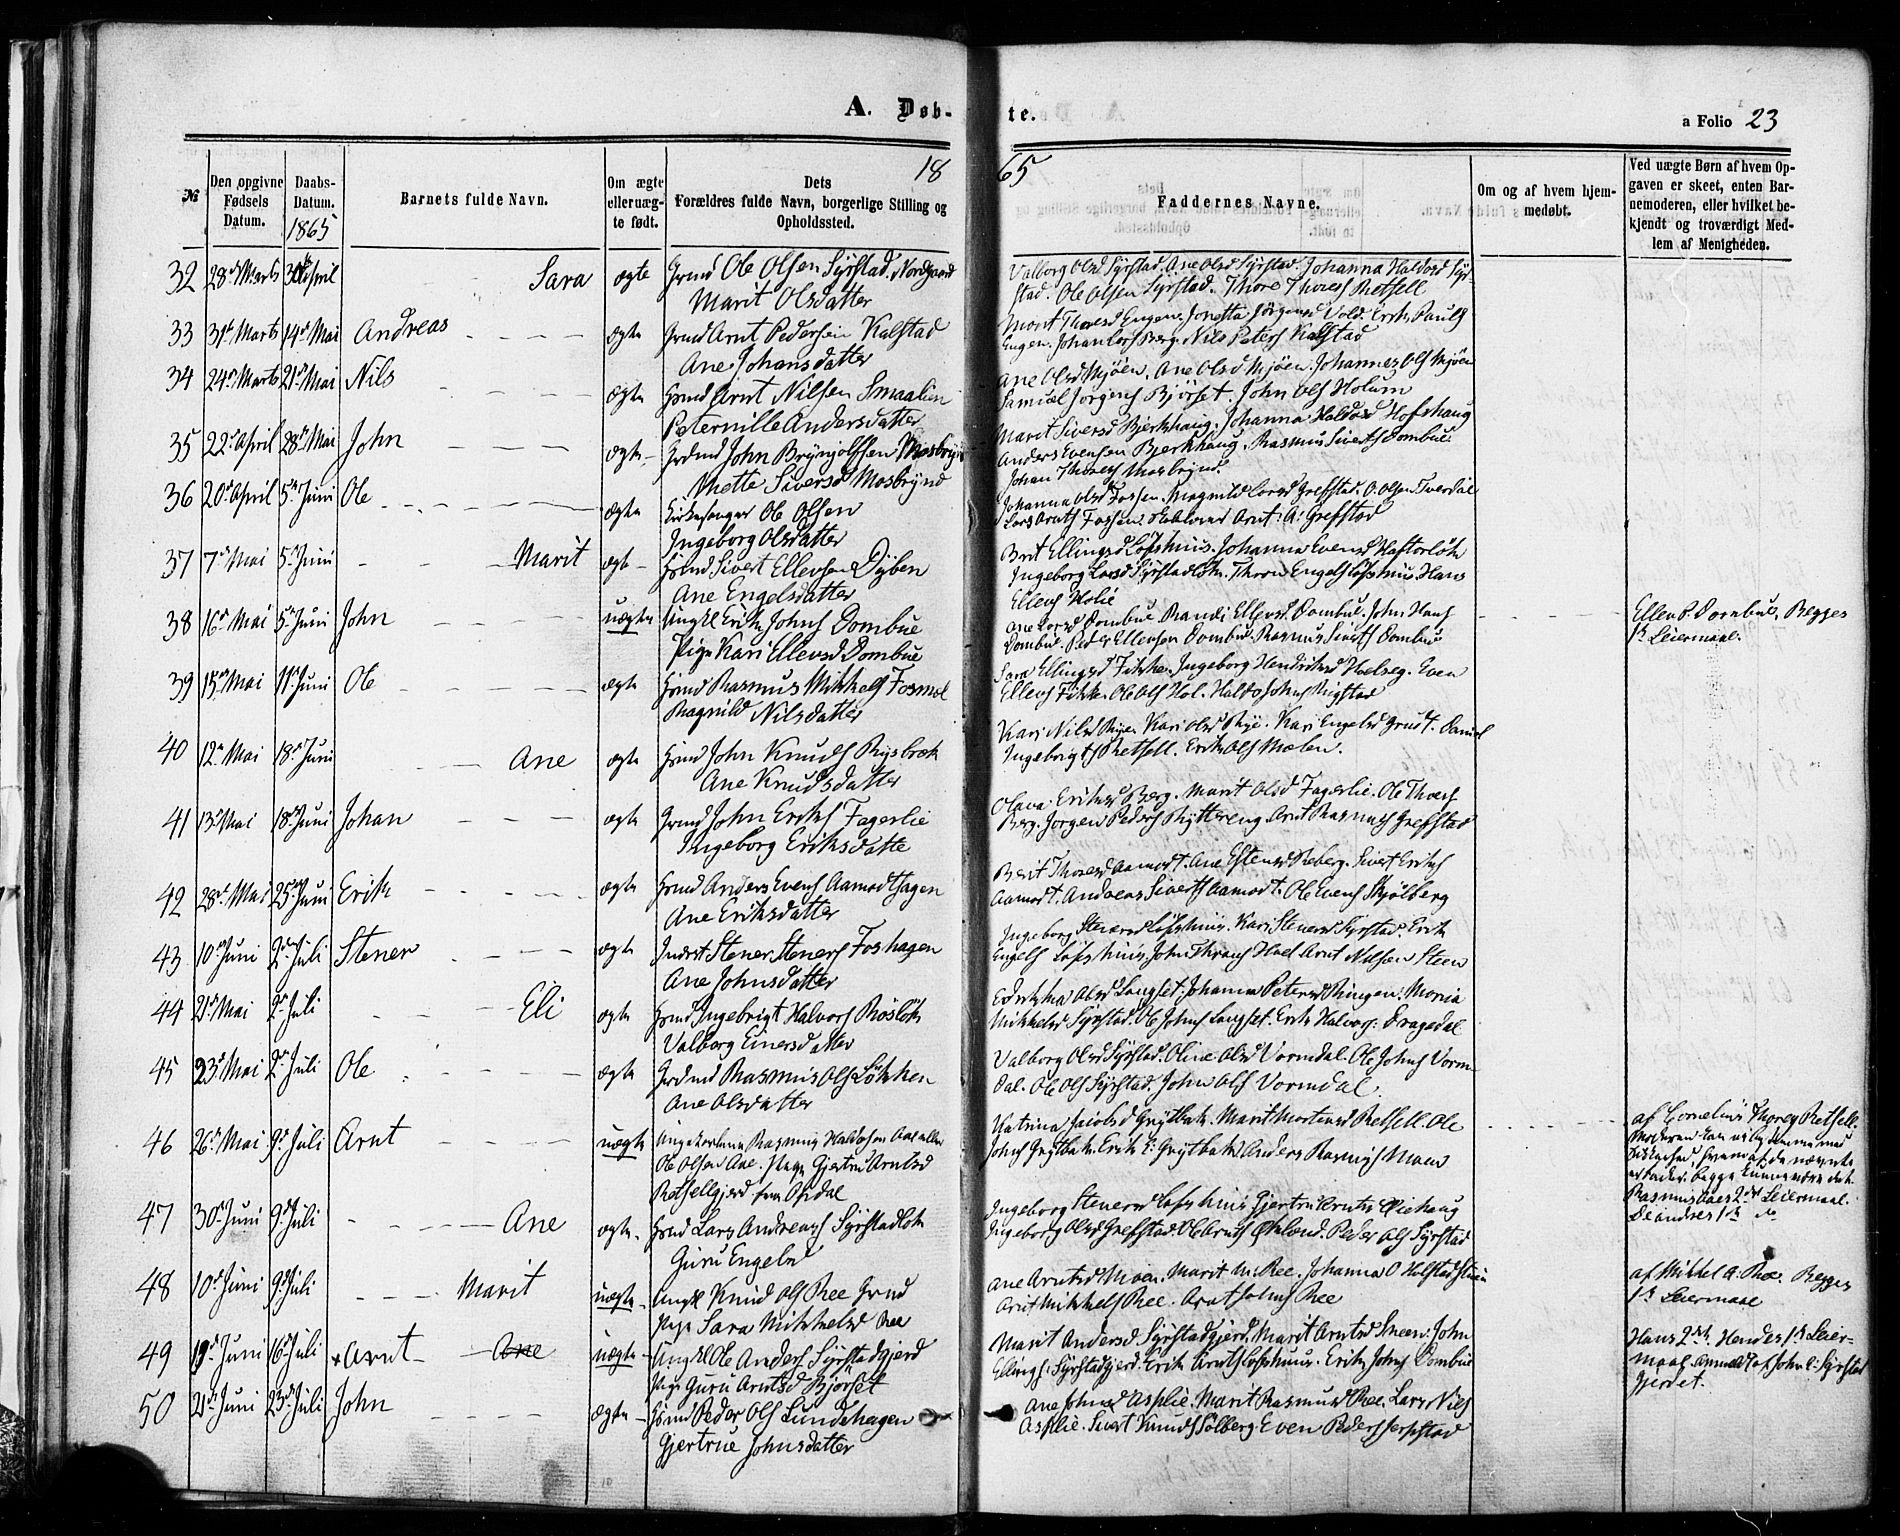 A. Døb-
te.
a Folio 23
18
65
№
Den opgivne Fødsels Datum.
Daabs-Datum. 1865
Barnets fulde Navn.
Om ægte eller uægte født.
Dets Forældres fulde Navn, borgerlige Stilling og Opholdssted.
Faddernes Navne.
Om og af hvem hjemmedøbt.
Ved uægte Børn af hvem Opgaven er skeet, enten Barnemoderen, eller hvilket bekjendt og troværdigt Medlem af Menigheden.
32 28de Marts April Sara ægte Ole Olsen Syrstad Nordgaard
Marit Olsdatter
Valborg Olsd Syrstad. Ane Olsd Syrstad. Johanna Haldosd Syr-
stad. Ole Olsen Syrstad. Thore Thores Retsell
33 31te Marts 14de Mai Andreas ægte Arnt Pedersen Kalstad
Ane Johansdatter
Marit Thoresd Engen. Jonetta Jørgensd Vold. Erik Pauls
Engen. Johan Berg. Nils Peters Kalstad
34 24de Marts 21de Mai Nils ægte Arnt Nilsen Smaalien
Peternille Andersdatter
Ane Olsd Mjøen. Ane Olsd Mjøen. Johannes Ols Mjøen
Samuel Jørgens Bjørset. John Ols Holum
35 22de April 28de Mai John ægte John Brynjolfsen Mosbrynd
Mette Siversd Mosbrynd
Marit Siversd Bjerkhaug. Johanna Haldosd Hofshaug
Anders Evensen Bjerkhaug. Rasmus Siverts Dombue
Johan Thores Mosbrynd.
36 20de April 5te Juni Ole ægte Kirkesanger Ole Olsen
Ingeborg Olsdatter
Johanna Olsd Fossen. Magnild Larsd Grefstad. O. Olsen Tverdal
Lars Arnts Fossen. Arnt A. Grefstad
37 7de Mai 5te Juni Marit ægte Sivert Ellevsen Dyben
Ane Engelsdatter
Brit Ellingsd Løfshuus. Johanna Evensd
Ingeborg Larsd Syrstadløkn. Thron Engels Løfshuus. Hans
Ellevs Holie
38 16de Mai 5te Juni John uægte Ungkl Erik Johns Dombue
Pige Kari Ellevsd Dombue
Ane Larsd Dombue. Randi Ellevsd Dombue. John Hans
Dombue. Peder Ellevsen Dombue. Rasmus Siverts Dombue
Ellev P. Dombue. Begges
1ste Leiermaal.
39 15de Mai 11te Juni Ole ægte Rasmus Mikkels Fosmoe
Magnild Nilsdatter
Sara Ellingsd Fikke. Ingeborg Hendriksd Helseg. Even
Ellevs Fikke. Ole Ols Hol. Haldo Johns Rigstad
40 12te Mai 18de Juni Ane ægte John Knuds Rysbræk
Ane Knudsdatter
Kari Nilsd Rye. Kari Olsd Rye. Kari Engelsd Grut. Daniel
Ingebrigts Retsell. Erik Ols Mælen.
41 13de Mai 18de Juni Johan ægte John Eriks Fagerlie
Ingeborg Eriksdatte
Olava Eriksd Berg. Marit Olsd Fagerlie. Ole Thores
Berg. Jørgen Peders Ryttereng. Arnt Rasmus Grefstad
42 28de Mai 25de Juni Erik ægte Anders Evens Aamodthagen
Ane Eriksdatter
Berit Thoresd Aamodt. Ane Estensd Reberg. Sivert Eriks
Aamodt. Andreas Siverts Aamodt. Ole Evens Skjølberg
43 10de Juni 2de Juli Stener ægte Inderst Stener Steners Foshagen
Ane Johnsdatter
Ingeborg Stenersd Løfshuus. Kari Stenersd Syrstad. Erik
Engels Løfshuus. John Throns Hoel. Arnt Nilsen Steen
44 Mai 2de Juli Eli ægte Ingebrigt Halvors Røsløkn
Valborg Einersdatter
Olsd Langset. Johanna Petersd Ringen. Maria
Mikkelsd Syrstad. Ole Johns Langset. Erik Halvors Dragedal
45 23de Mai 2de Juli Ole ægte Rasmus Ols Løkken
Ane Olsdatter
Valborg Olsd Syrstad. Oline Olsd Vormdal. Ole Johns Vorm-
dal. Ole Ols Syrstad. John Ols Vormdal.
46 26de Mai 9de Juli Arnt uægte Rasmus Haldosen Aae eller
Ole Olsen Aae. Pige Gjertru Arntsd
Retsellgjerd fra Opdal
Katrina Jacobsd Grytbak. Marit Mortensd Retsell. Ole
Johns Grytbak. Erik E. Grytbak. Anders Rasmus Moen
af Cornelius Thores Retsell.
Moderen kan
Rasmus Aaes 2det Leiermaal.
De andres 1ste do
47 30de Juni 9de Juli Ane ægte Lars Andreas Syrstadløkn
Guru Engelsd
Ingeborg Stenersd Løfshuus. Gjertru Arntsd Viehaug
Ingeborg Olsd Grefstad. Ole Arnts Peder Ols Syrstad
48 10de Juni 9de Juli Marit uægte Ungkl Knud Ols Ree
Pige Sara Mikkelsd Ree
Ane Arntsd Moen. Marit M. Ree. Johanna O Holstad
Arnt Mikkels Ree. Arnt Johns Ree
af Mikkel A. Ree. Begges
1ste Leiermaal
49 19de Juni 16de Juli Arnt Ane uægte Ungkl Ole Anders Syrstadgjerd
Pige Guru Arntsd Bjørset
Marit Andersd Syrstadgjerd. Marit Arntsd Sneen. John
Ellings Syrstadgjerd. Erik Arnts Løfshuus. Erik Johns Dombue
Hans 2det Hendes 1ste Leier-
maal. Anmeldt af John E. Syrstad
gjerdet.
50 Juni 23de Juli John ægte Peder Ols Lundehagen
Gjertrue Johnsdatter
Ane Johnsd Asplie. Marit Rasmusd Ree. Lars Nils
Asplie. Sivert Knuds Sølberg. Even Peders Jerpstad